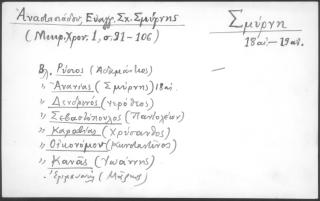 Αναστασιάδου, Ευαγγ. Σχ. Σμύρνης
(Μικρ. Χρον. 1, σ. 91-106)
Σμύρνη
18 αι. - 19 αι.
Βλ. Ρύσιος (Αδαμάντιος)
" Ανανίας (Σμύρνης) 18 αι.
" Δενδρινός (Ιερόθεος)
" Σεβαστόπουλος (Πανταλέων)
" Καραβίας (Χρύσανθος)
" Οικονόμου (Κωνσταντίνος)
" Κανάς (Ιωάννης)